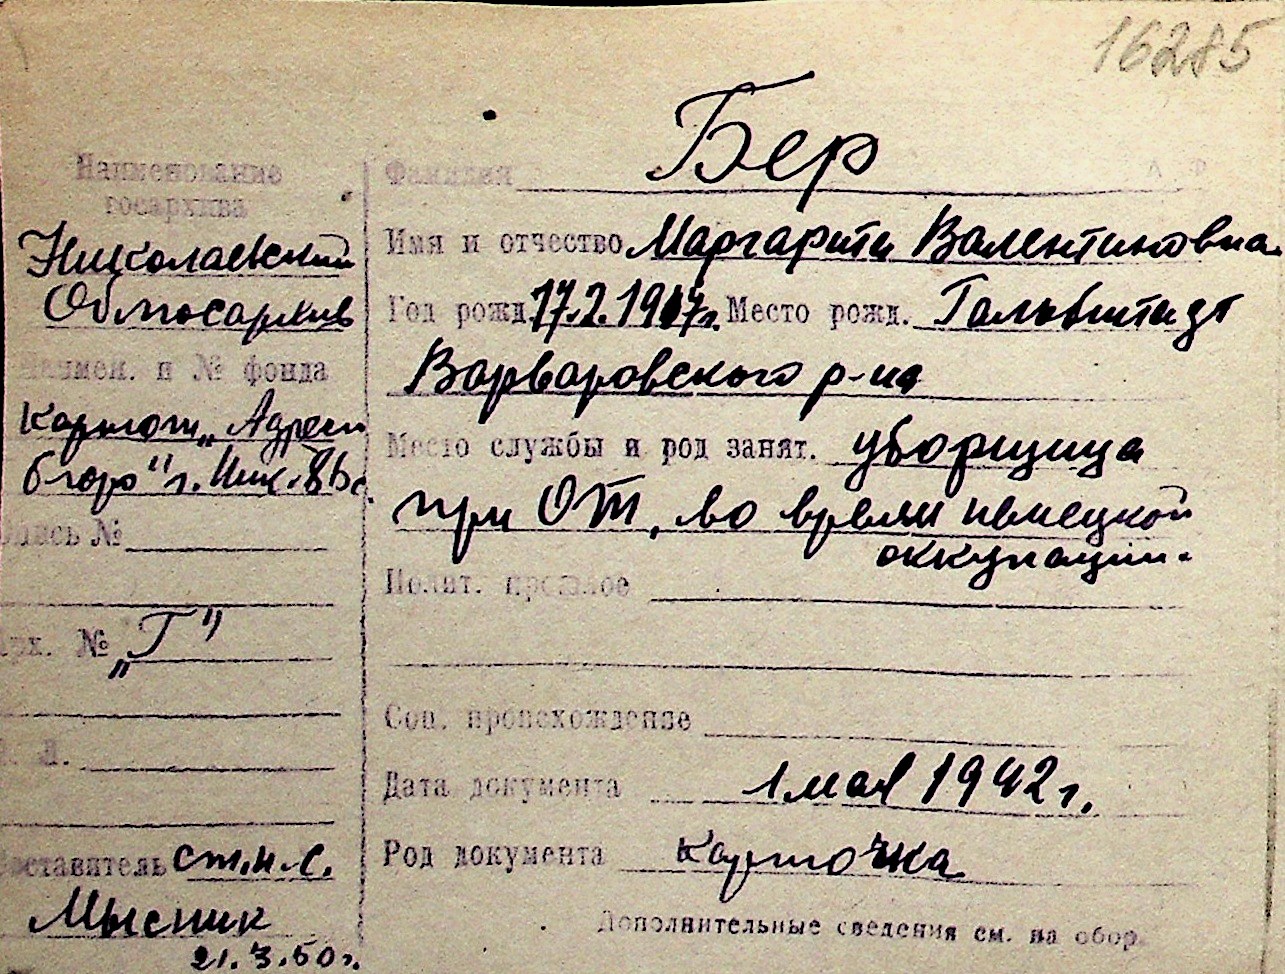 16285
Наименование
госархива
Николаевский
Облгосархив
Наимен. и № фонда
Картот. „Адресн
бюро" г. Ник.-
Опись №
Арх. № „Г"
Л. Л.
Составитель ст.н.с.
Мысник
21.3.50г.
Фамилия Бер
Имя и отчество Маргарита Валентиновна
Год рожд. 17.2.1917г. Место рожд. Гальбштадт
Варваровского р-на
Место службы и род занят. уборщица
при ОТ, во время немецкой
оккупации.
Полит. прошлое
Соц. происхождение
Дата документа 1 мая 1942 г.
Род документа Карточка
Дополнительные сведения см. на обор.